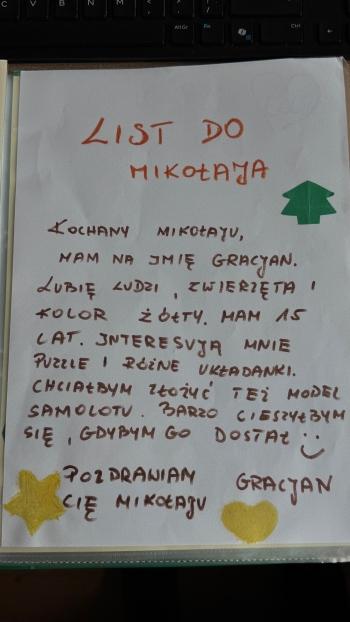 C V B N M
AltGr Fn Ctrl
LIST DO
MIKOŁAJA
KOCHANY MIKOŁAJU,
MAM NA IMIĘ GRACJAN.
LUBIĘ LUDZI, ZWIERZĘTA I
KOLOR ŻÓŁTY. MAM 15
LAT. INTERESUJĄ MNIE
PUZZLE I RÓŻNE UKŁADANKI.
CHCIAŁBYM ZŁOŻYĆ TEŻ MODEL
SAMOLOTU. BARZO CIESZYŁBYM
SIĘ, GDYBYM GO DOSTAŁ :)
POZDRAWIAM GRACJAN
CIĘ MIKOŁAJU